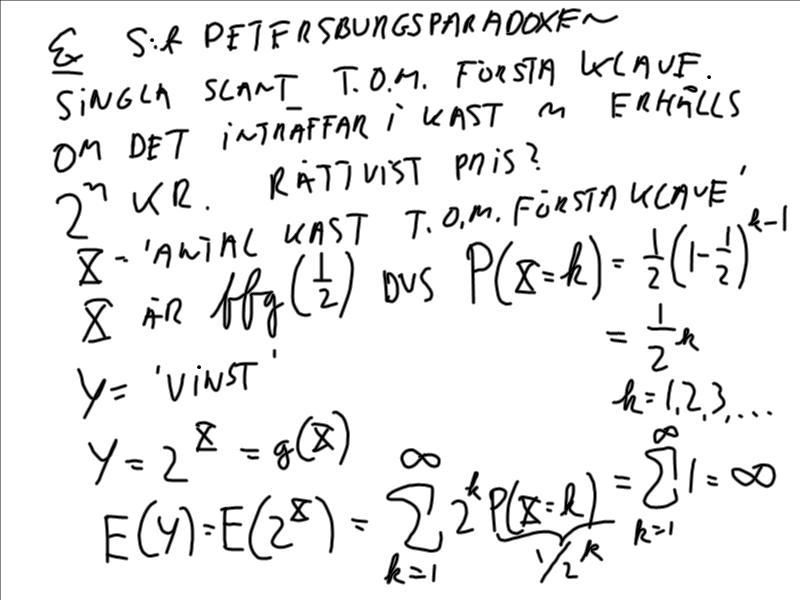 E S:t PETERSBURGSPARADOXEN
SINGLA SLANT T.O.M. FÖRSTA KLAVE.
OM DET INTRÄFFAR I KAST n ERHÅLLS
2^n KR. RÄTTVIST PRIS?
X = 'ANTAL KAST T.O.M. FÖRSTA KLAVE'
X ÄR ffg(1/2) DVS P(X=k) = 1/2(1-1/2)^{k-1}
= 1/2^k
k=1,2,3,...
Y= 'VINST'
Y=2^X = g(X)
E(Y)=E(2^X) = ∑_{k=1}^{∞} 2^k P(X=k) = ∑_{k=1}^{∞} 1 = ∞
1/2^k